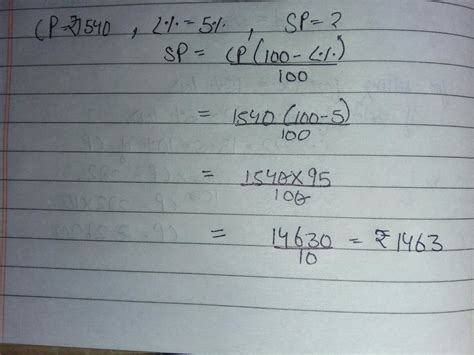 CP=₹1540 , L%=5% , SP=?
SP = CP(100-L%)/100
= 1540(100-5)/100
= 1540×95/100
= 14630/10 = ₹1463